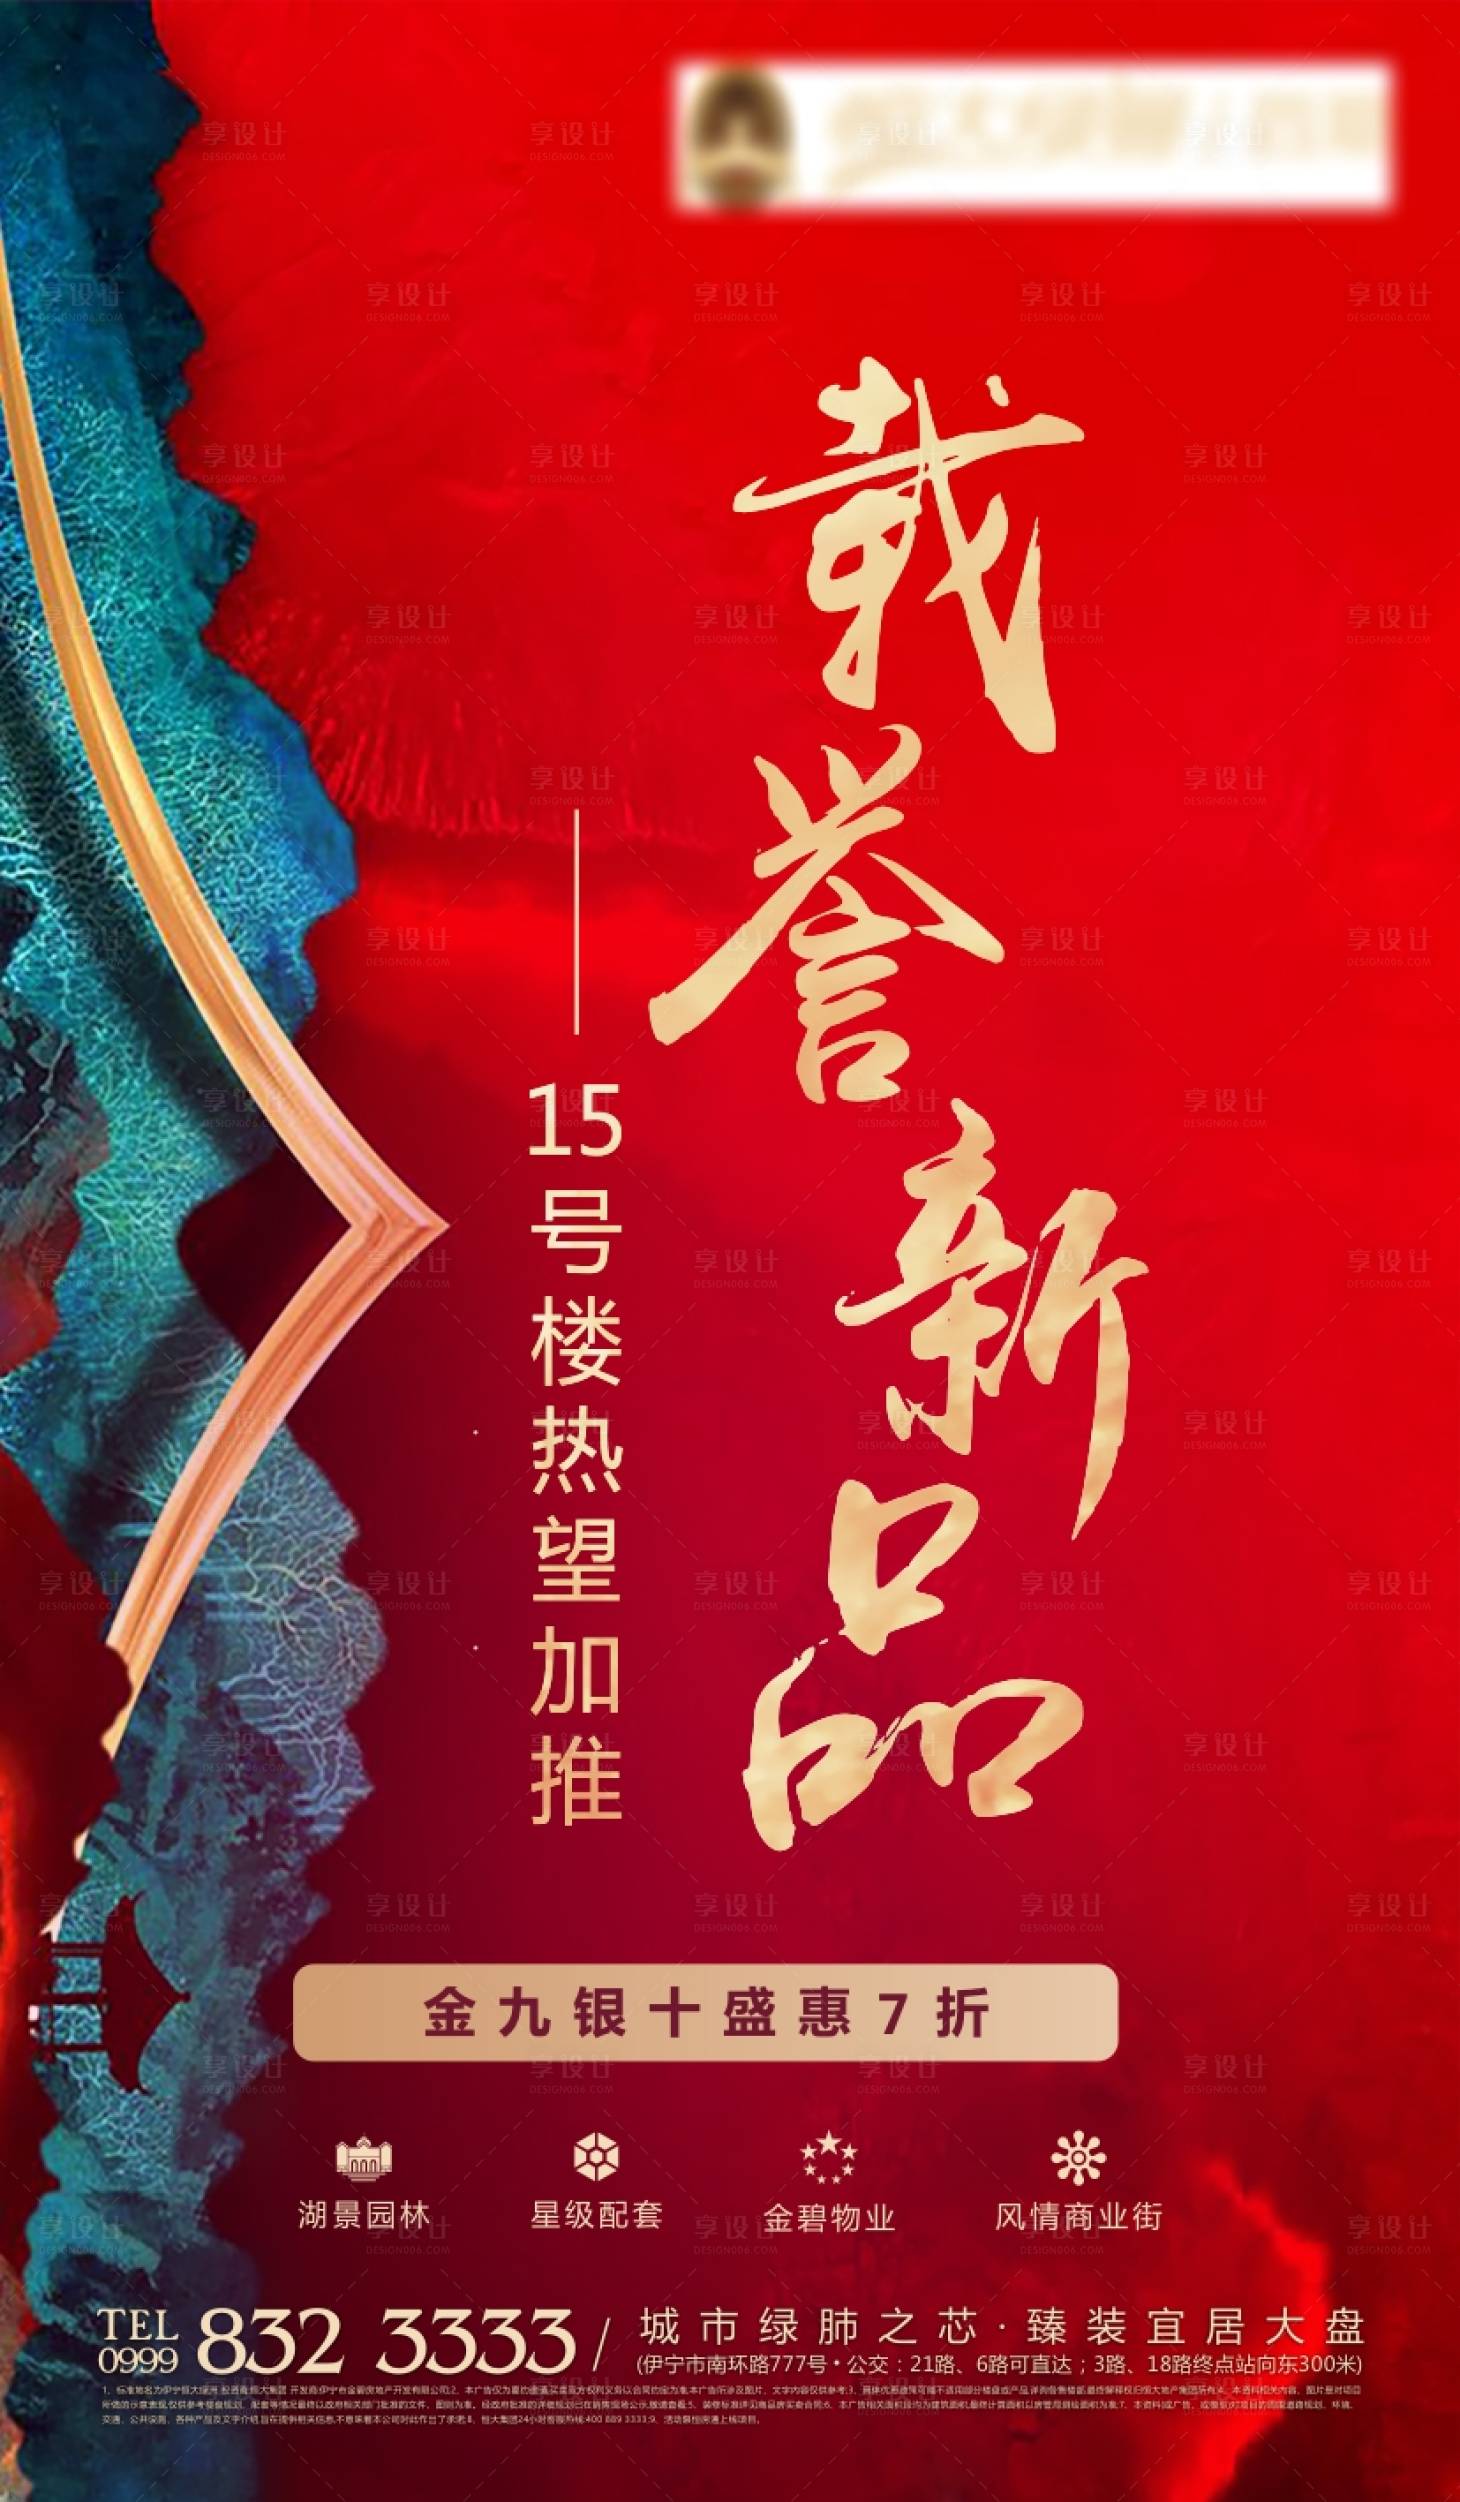 载誉新品
15号楼热望加推
金九银十盛惠7折
湖景园林
星级配套
金碧物业
风情商业街
TEL 0999 832 3333 / 城市绿肺之芯·臻装宜居大盘
(伊宁市南环路777号•公交：21路、6路可直达；3路、18路终点站向东300米)
享设计
DESIGN006.COM